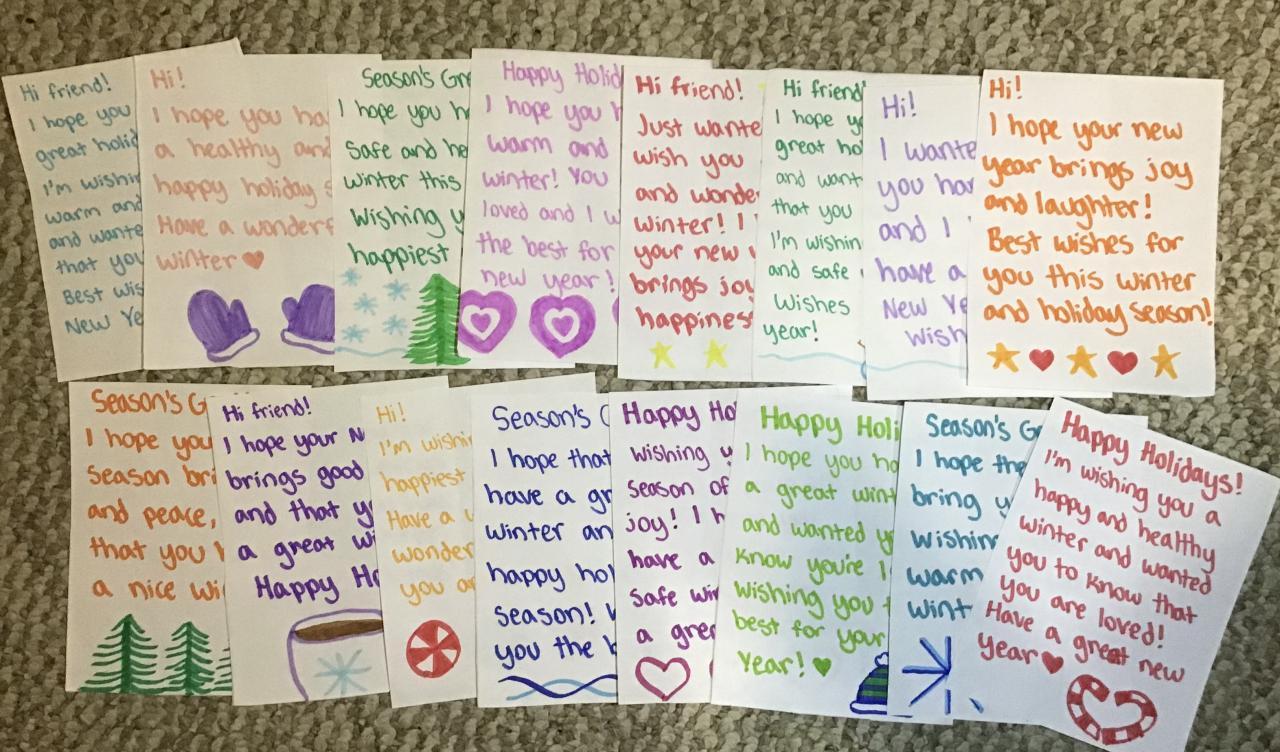 Hi friend!
I hope you
great holid
I'm wishin
warm and
and wante
that you
Best wis
New Ye
Hi!
I hope you ha
a healthy and
happy holiday s
Have a wonderf
winter
Season's Gre
I hope you h
safe and he
winter this
Wishing y
happiest
Happy Holid
I hope you h
warm and
winter! You
loved and I w
the best for
new year!
Hi friend!
Just wante
wish you
and wonde
winter! I
your new
brings joy
happines
Hi friend
I hope yo
great ho
and want
that you
I'm wishin
and safe
Wishes
year!
Hi!
I wante
you hav
and I
have a
New Ye
Wish
Hi!
I hope your new
year brings joy
and laughter!
Best wishes for
you this winter
and holiday season!
Season's G
I hope you
season bri
and peace,
that you
a nice wi
Hi friend!
I hope your N
brings good
and that y
a great wi
Happy Ho
Hi!
I'm wishi
happiest
Have a
wonder
you a
Season's G
I hope that
have a gr
winter an
happy hol
season! W
you the b
Happy Ho
Wishing y
season of
joy! I h
have a
safe win
a grea
Happy Holi
I hope you ha
a great wint
and wanted y
know you're l
Wishing you
best for your
Year!
Season's Gr
I hope the
bring y
wishin
warm
wint
Happy Holidays!
I'm wishing you a
happy and healthy
winter and wanted
you to know that
you are loved!
Have a great new
year